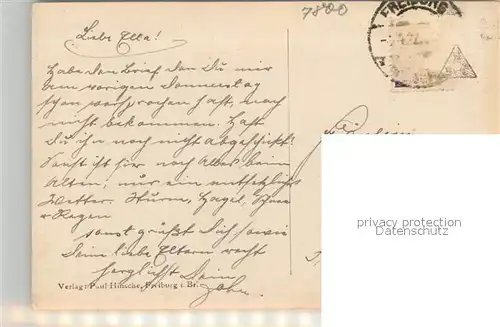 7800
FREIBURG
Liebe Ella!
Habe den Brief den Du mir
am vorigen Donnerstag
schon versprochen hast, noch
nicht bekommen. Hast
Du ihn noch nicht abgeschickt?
Sonst ist hier noch Alles beim
Alten; nur ein entsetzliches
Wetter. Sturm, Hagel, Schnee
u Regen
sonst grüßt Dich sowie
Deine liebe Eltern recht
herzlichst Dein
Verlag: Paul Hinsche, Freiburg i. Br.
privacy protection
watermark